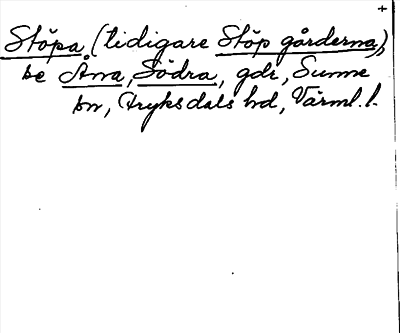 +
Stöpa, (tidigare Stöp gårderna),
se Åna, Södra, gdr, Sunne
sn, Fryksdals hd, Värml. l.